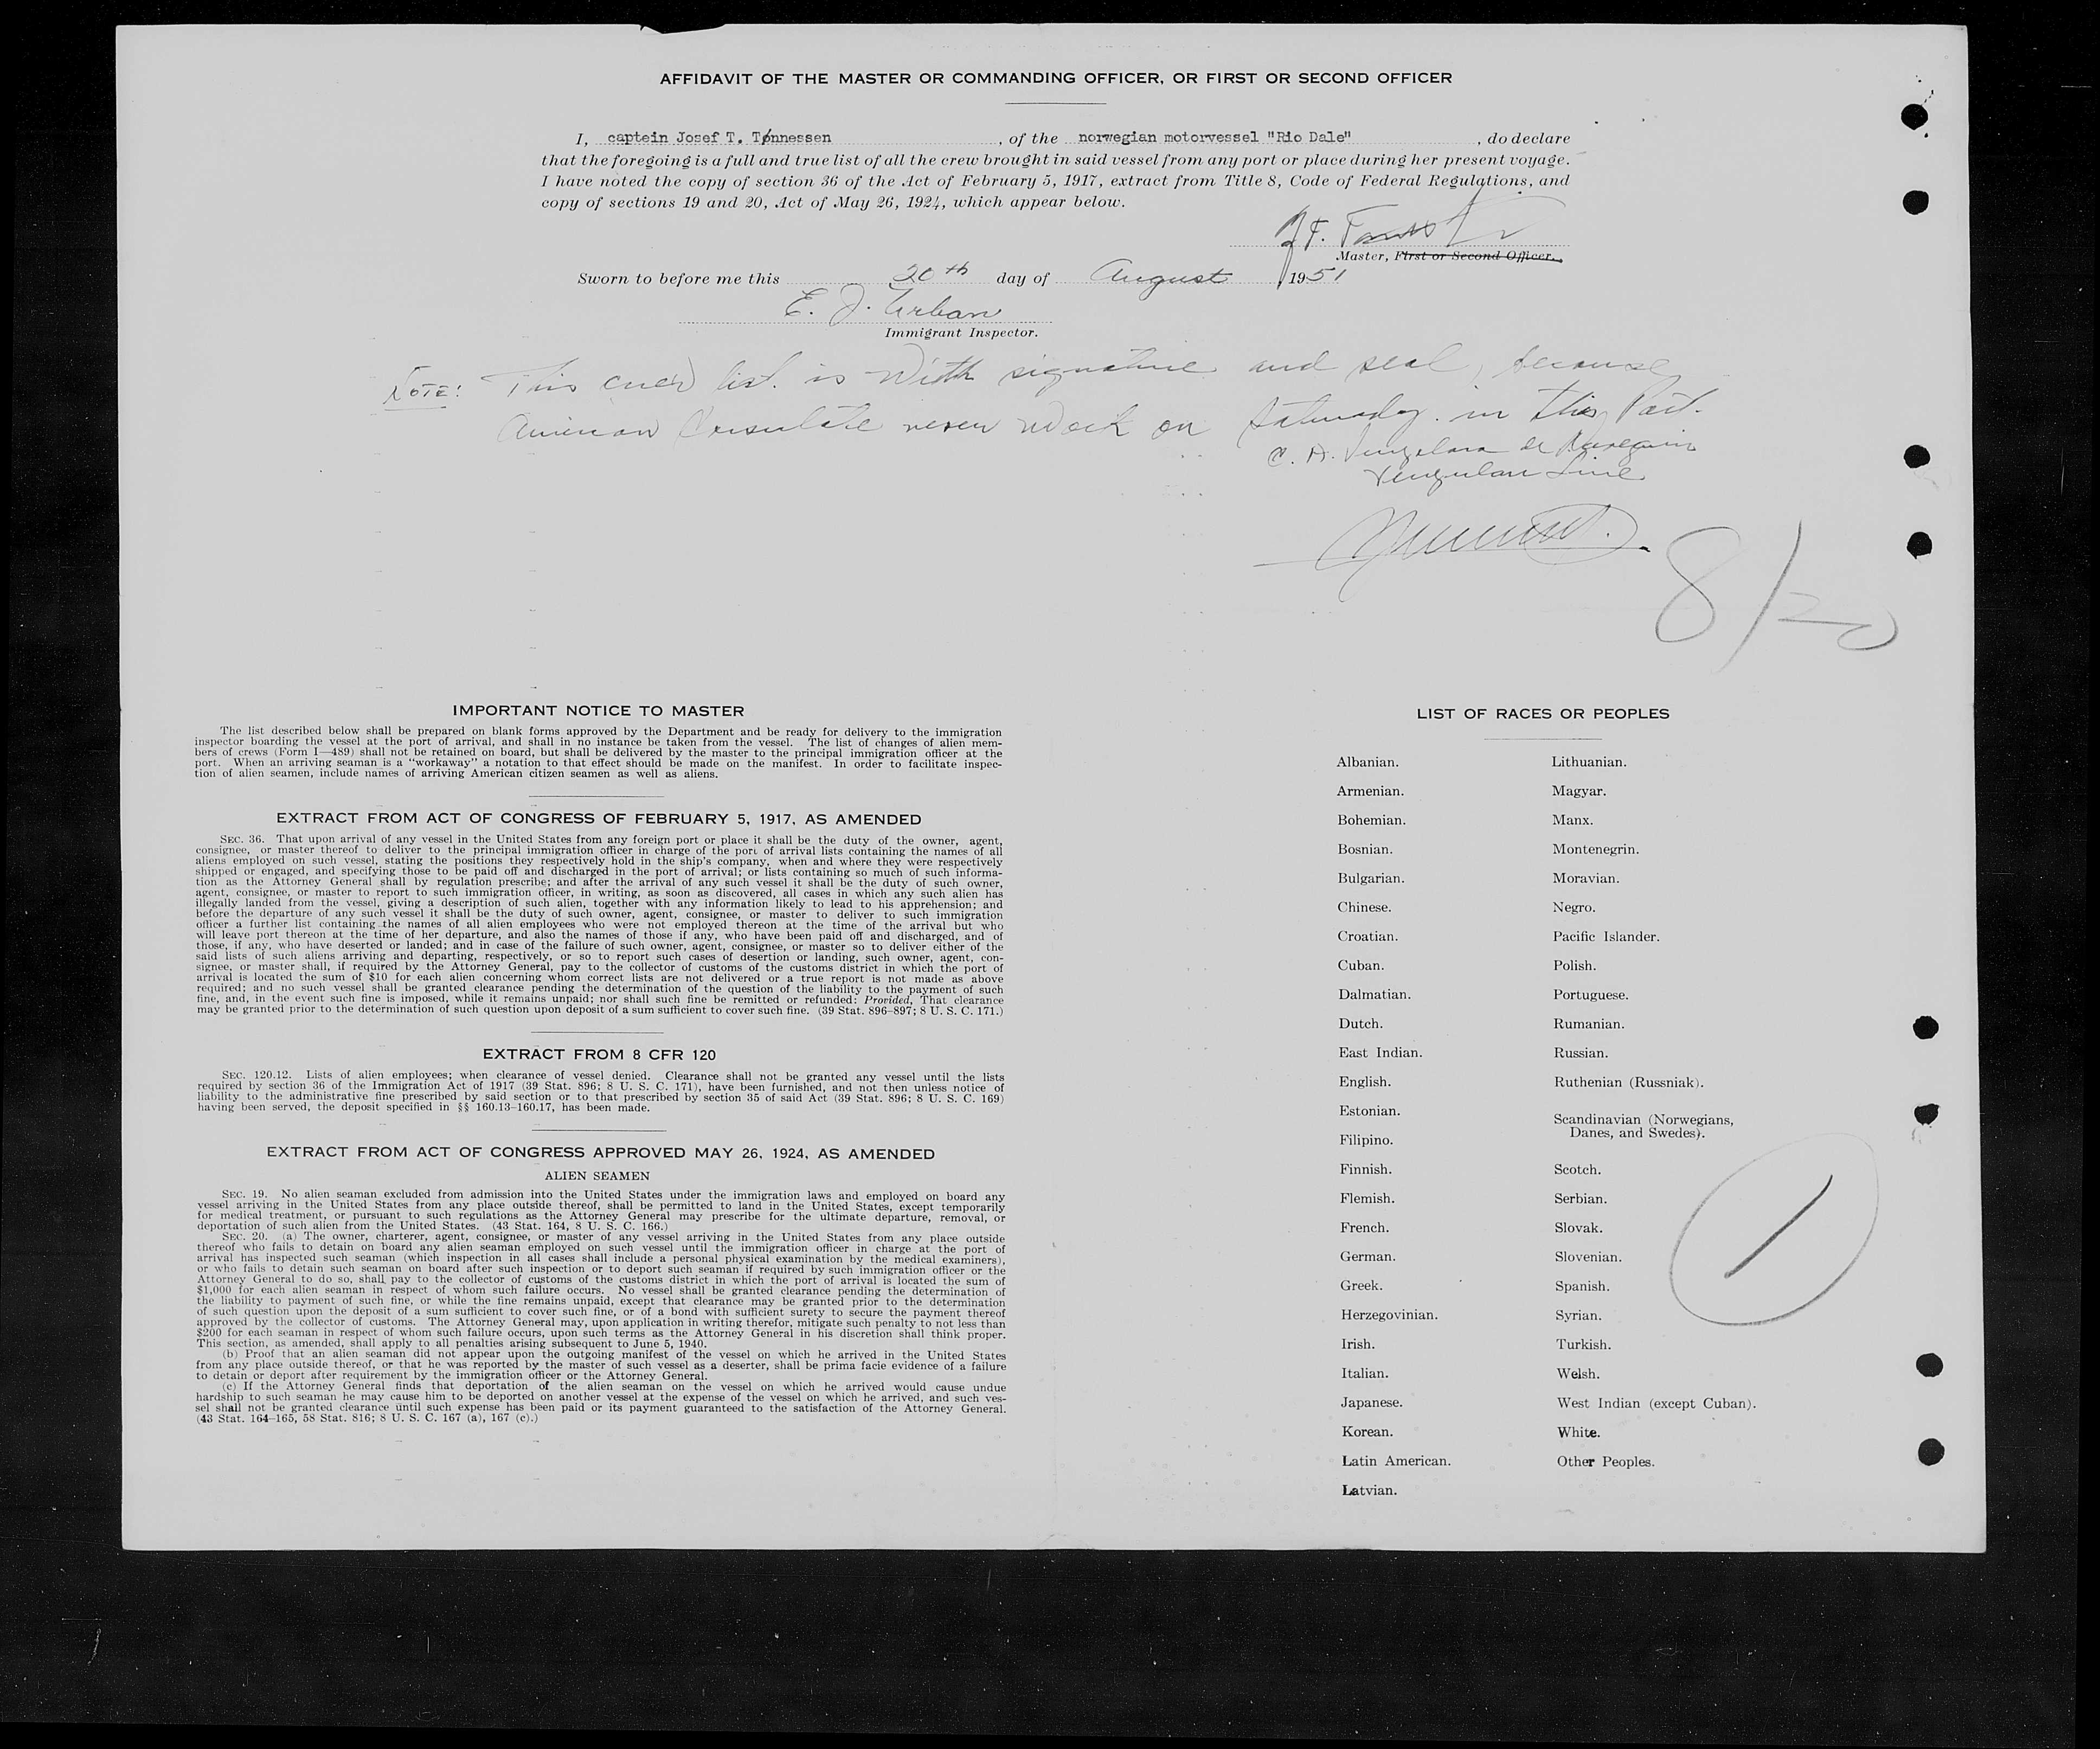 AFFIDAVIT OF THE MASTER OR COMMANDING OFFICER, OR FIRST OR SECOND OFFICER
I, captein Josef T. Tønnessen , of the norwegian motorvessel "Rio Dale" , do declare
that the foregoing is a full and true list of all the crew brought in said vessel from any port or place during her present voyage.
I have noted the copy of section 36 of the Act of February 5, 1917, extract from Title 8, Code of Federal Regulations, and
copy of sections 19 and 20, Act of May 26, 1924, which appear below.
Master, First or Second Officer.
Sworn to before me this 20th day of August 1951
E. J. Urban
Immigrant Inspector.
NOTE: This crew list. is With signature and seal, because
American Consulate never work on Saturday. in this Port.
C. A. Venezolana de
Line
8/20
IMPORTANT NOTICE TO MASTER
The list described below shall be prepared on blank forms approved by the Department and be ready for delivery to the immigration
inspector boarding the vessel at the port of arrival, and shall in no instance be taken from the vessel. The list of changes of alien mem-
bers of crews (Form I—489) shall not be retained on board, but shall be delivered by the master to the principal immigration officer at the
port. When an arriving seaman is a "workaway" a notation to that effect should be made on the manifest. In order to facilitate inspec-
tion of alien seamen, include names of arriving American citizen seamen as well as aliens.
EXTRACT FROM ACT OF CONGRESS OF FEBRUARY 5, 1917, AS AMENDED
SEC. 36. That upon arrival of any vessel in the United States from any foreign port or place it shall be the duty of the owner, agent,
consignee, or master thereof to deliver to the principal immigration officer in charge of the port of arrival lists containing the names of all
aliens employed on such vessel, stating the positions they respectively hold in the ship's company, when and where they were respectively
shipped or engaged, and specifying those to be paid off and discharged in the port of arrival; or lists containing so much of such informa-
tion as the Attorney General shall by regulation prescribe; and after the arrival of any such vessel it shall be the duty of such owner,
agent, consignee, or master to report to such immigration officer, in writing, as soon as discovered, all cases in which any such alien has
illegally landed from the vessel, giving a description of such alien, together with any information likely to lead to his apprehension; and
before the departure of any such vessel it shall be the duty of such owner, agent, consignee, or master to deliver to such immigration
officer a further list containing the names of all alien employees who were not employed thereon at the time of the arrival but who
will leave port thereon at the time of her departure, and also the names of those if any, who have been paid off and discharged, and of
those, if any, who have deserted or landed; and in case of the failure of such owner, agent, consignee, or master so to deliver either of the
said lists of such aliens arriving and departing, respectively, or so to report such cases of desertion or landing, such owner, agent, con-
signee, or master shall, if required by the Attorney General, pay to the collector of customs of the customs district in which the port of
arrival is located the sum of $10 for each alien concerning whom correct lists are not delivered or a true report is not made as above
required; and no such vessel shall be granted clearance pending the determination of the question of the liability to the payment of such
fine, and, in the event such fine is imposed, while it remains unpaid; nor shall such fine be remitted or refunded: Provided, That clearance
may be granted prior to the determination of such question upon deposit of a sum sufficient to cover such fine. (39 Stat. 896-897; 8 U. S. C. 171.)
EXTRACT FROM 8 CFR 120
SEC. 120.12. Lists of alien employees; when clearance of vessel denied. Clearance shall not be granted any vessel until the lists
required by section 36 of the Immigration Act of 1917 (39 Stat. 896; 8 U. S. C. 171), have been furnished, and not then unless notice of
liability to the administrative fine prescribed by said section or to that prescribed by section 35 of said Act (39 Stat. 896; 8 U. S. C. 169)
having been served, the deposit specified in §§ 160.13-160.17, has been made.
EXTRACT FROM ACT OF CONGRESS APPROVED MAY 26, 1924, AS AMENDED
ALIEN SEAMEN
SEC. 19. No alien seaman excluded from admission into the United States under the immigration laws and employed on board any
vessel arriving in the United States from any place outside thereof, shall be permitted to land in the United States, except temporarily
for medical treatment, or pursuant to such regulations as the Attorney General may prescribe for the ultimate departure, removal, or
deportation of such alien from the United States. (43 Stat. 164, 8 U. S. C. 166.)
SEC. 20. (a) The owner, charterer, agent, consignee, or master of any vessel arriving in the United States from any place outside
thereof who fails to detain on board any alien seaman employed on such vessel until the immigration officer in charge at the port of
arrival has inspected such seaman (which inspection in all cases shall include a personal physical examination by the medical examiners),
or who fails to detain such seaman on board after such inspection or to deport such seaman if required by such immigration officer or the
Attorney General to do so, shall pay to the collector of customs of the customs district in which the port of arrival is located the sum of
$1,000 for each alien seaman in respect of whom such failure occurs. No vessel shall be granted clearance pending the determination of
the liability to payment of such fine, or while the fine remains unpaid, except that clearance may be granted prior to the determination
of such question upon the deposit of a sum sufficient to cover such fine, or of a bond with sufficient surety to secure the payment thereof
approved by the collector of customs. The Attorney General may, upon application in writing therefor, mitigate such penalty to not less than
$200 for each seaman in respect of whom such failure occurs, upon such terms as the Attorney General in his discretion shall think proper.
This section, as amended, shall apply to all penalties arising subsequent to June 5, 1940.
(b) Proof that an alien seaman did not appear upon the outgoing manifest of the vessel on which he arrived in the United States
from any place outside thereof, or that he was reported by the master of such vessel as a deserter, shall be prima facie evidence of a failure
to detain or deport after requirement by the immigration officer or the Attorney General.
(c) If the Attorney General finds that deportation of the alien seaman on the vessel on which he arrived would cause undue
hardship to such seaman he may cause him to be deported on another vessel at the expense of the vessel on which he arrived, and such ves-
sel shall not be granted clearance until such expense has been paid or its payment guaranteed to the satisfaction of the Attorney General.
(43 Stat. 164-165, 58 Stat. 816; 8 U. S. C. 167 (a), 167 (c).)
LIST OF RACES OR PEOPLES
Albanian.
Armenian.
Bohemian.
Bosnian.
Bulgarian.
Chinese.
Croatian.
Cuban.
Dalmatian.
Dutch.
East Indian.
English.
Estonian.
Filipino.
Finnish.
Flemish.
French.
German.
Greek.
Herzegovinian.
Irish.
Italian.
Japanese.
Korean.
Latin American.
Latvian.
Lithuanian.
Magyar.
Manx.
Montenegrin.
Moravian.
Negro.
Pacific Islander.
Polish.
Portuguese.
Rumanian.
Russian.
Ruthenian (Russniak).
Scandinavian (Norwegians,
Danes, and Swedes).
Scotch.
Serbian.
Slovak.
Slovenian.
Spanish.
Syrian.
Turkish.
Welsh.
West Indian (except Cuban).
White.
Other Peoples.
1